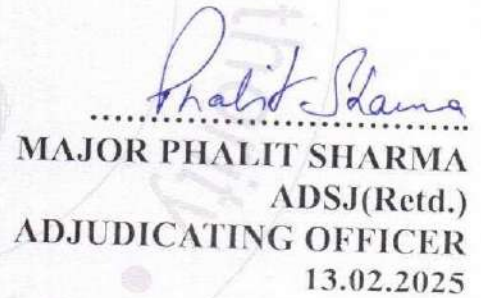 Phalit Sharma
MAJOR PHALIT SHARMA
ADSJ(Retd.)
ADJUDICATING OFFICER
13.02.2025